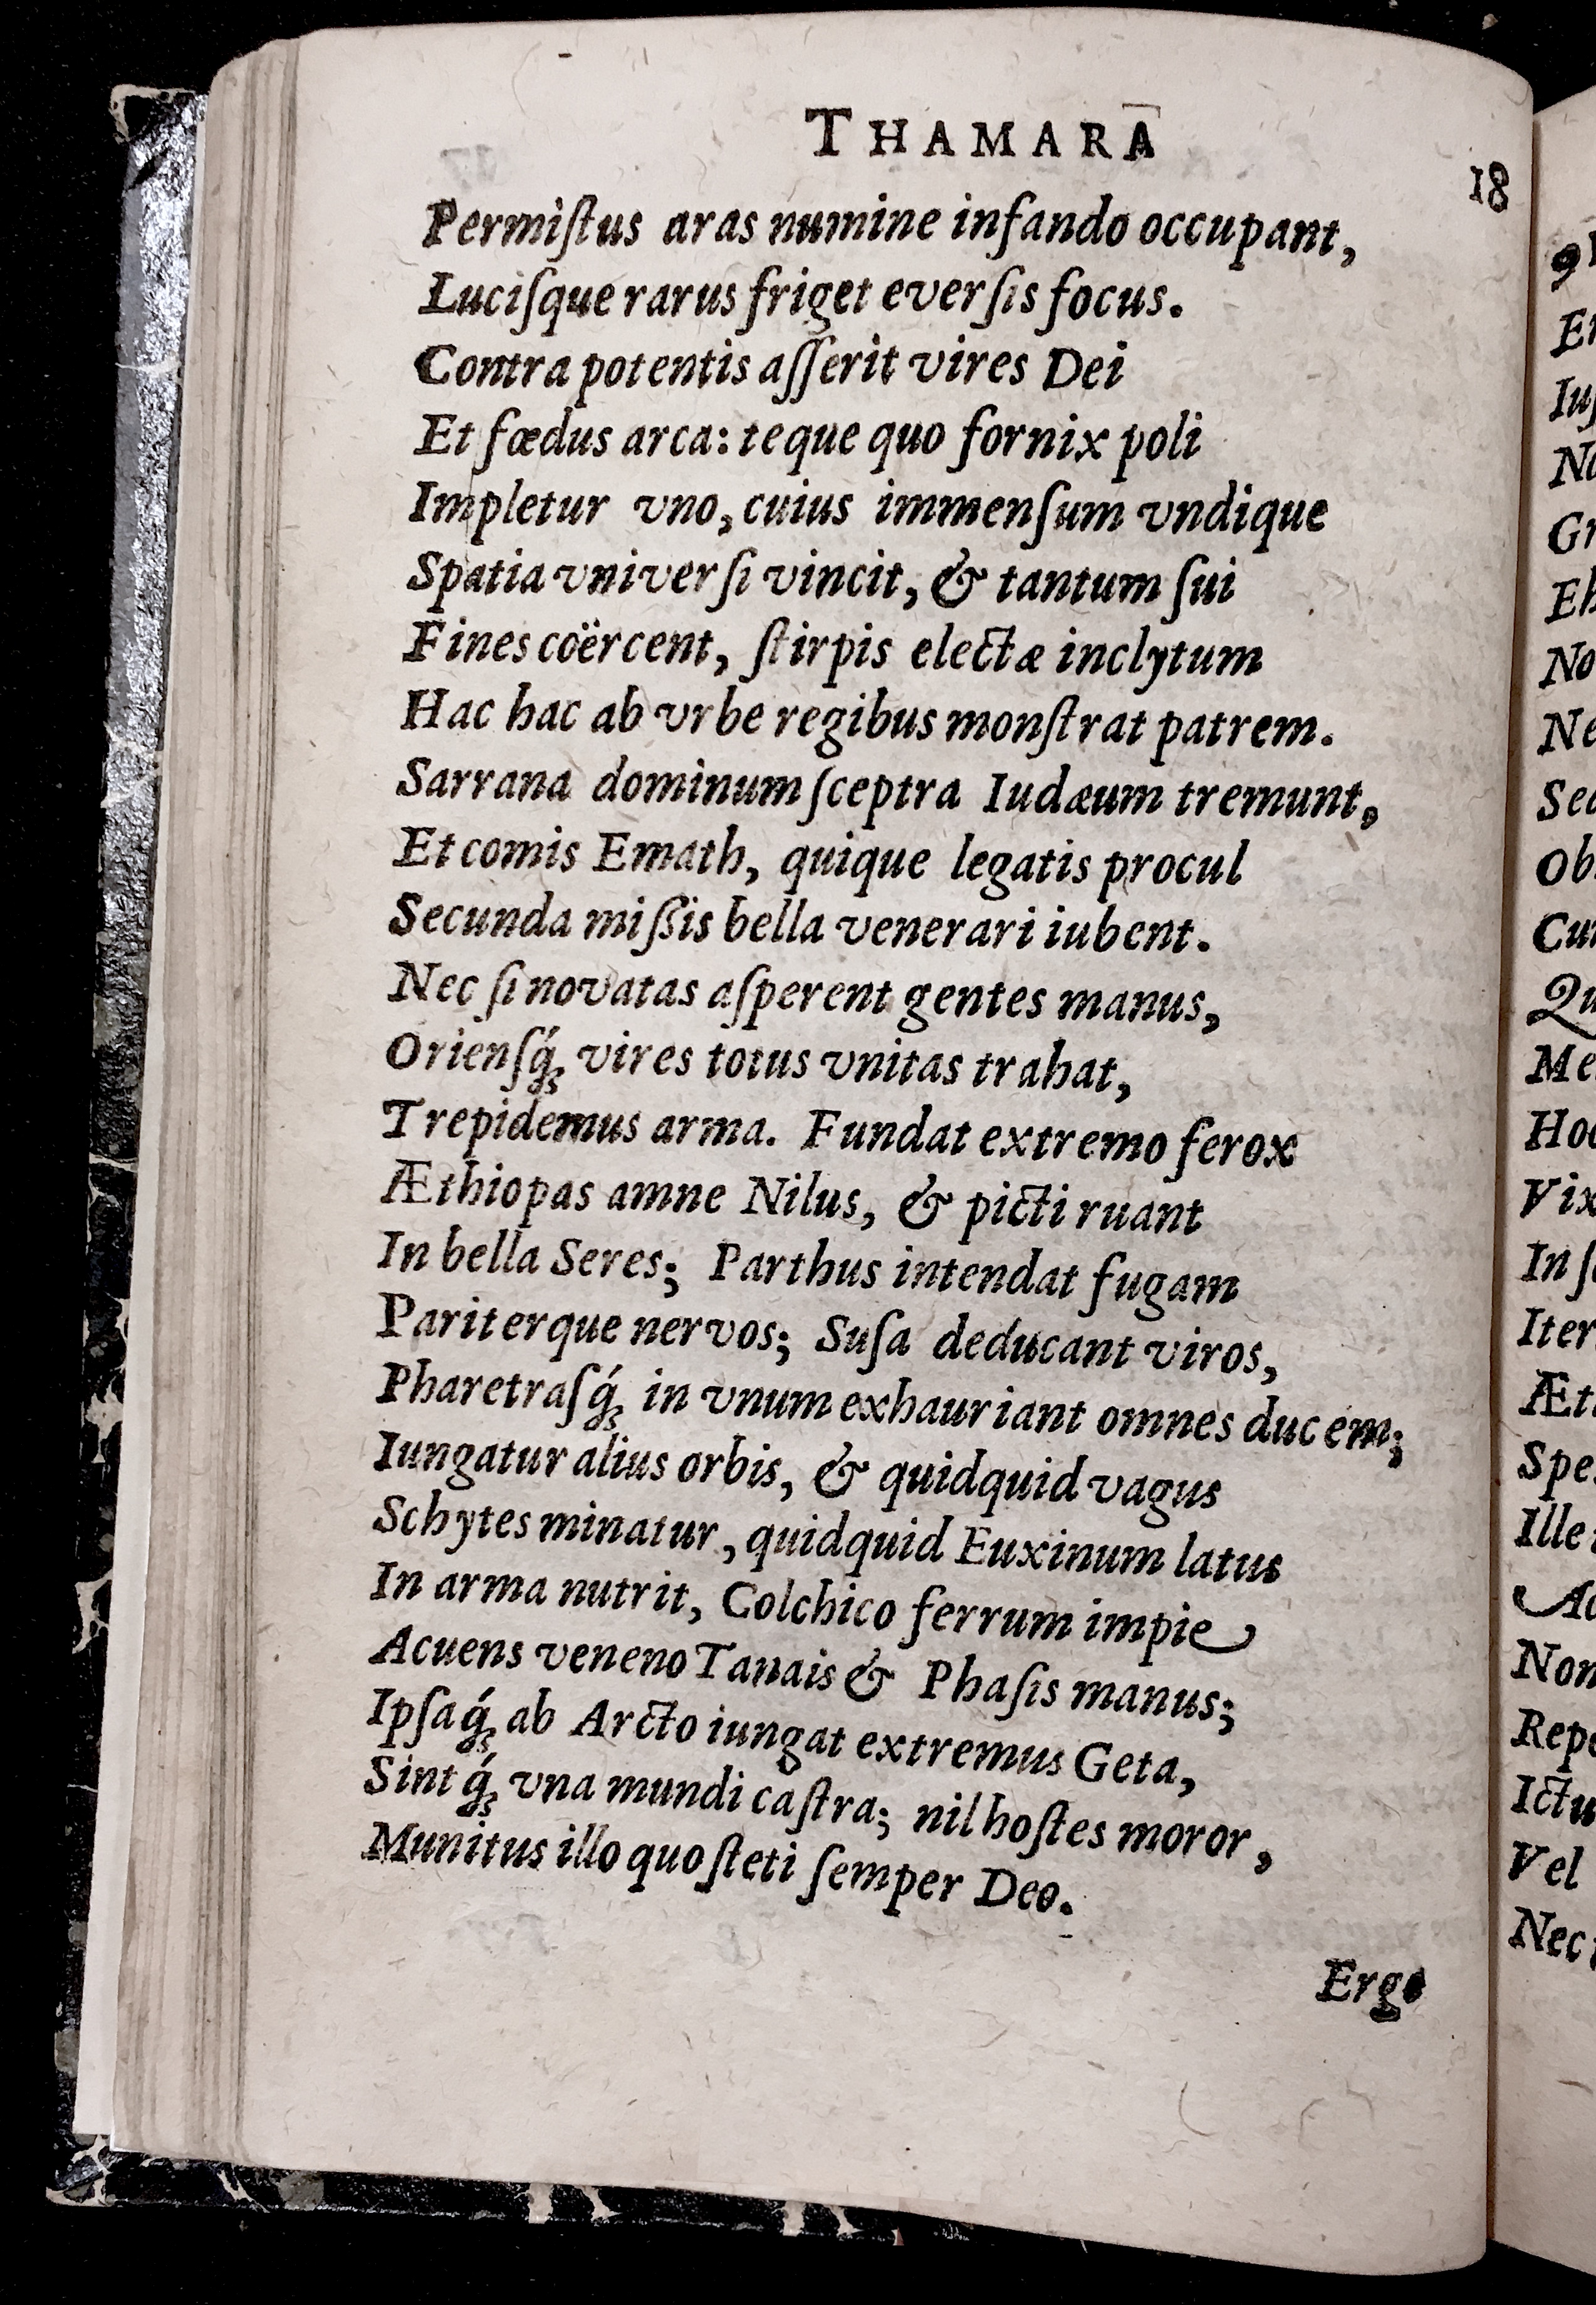 THAMARA
18
Permiſtus aras numine infando occupant,
Luciſque rarus friget everſis focus.
Contra potentis aſſerit vires Dei
Et fœdus arca: teque quo fornix poli
Impletur vno, cuius immenſum vndique
Spatia vniverſi vincit, & tantum ſui
Fines coërcent, ſtirpis electæ inclytum
Hac hac ab vrbe regibus monſtrat patrem.
Sarrana dominum ſceptra Iudæum tremunt,
Et comis Emath, quique legatis procul
Secunda miſsis bella venerari iubent.
Nec ſi novatas aſperent gentes manus,
Orienſq́; vires totus vnitas trahat,
Trepidemus arma. Fundat extremo ferox
Æthiopas amne Nilus, & picti ruant
In bella Seres; Parthus intendat fugam
Pariterque nervos; Suſa deducant viros,
Pharetraſq́; in vnum exhauriant omnes ducem;
Iungatur alius orbis, & quidquid vagus
Schytes minatur, quidquid Euxinum latus
In arma nutrit, Colchico ferrum impie
Acuens veneno Tanais & Phaſis manus;
Ipſaq́; ab Arcto iungat extremus Geta,
Sintq́; vna mundi caſtra; nil hoſtes moror,
Munitus illo quo ſteti ſemper Deo.
Ergo
Iter
Cu
Qu
Me
Ho
Vix
In ſ
Æt
Spe
Ille
Non
Rep
Ictu
Vel
Nec